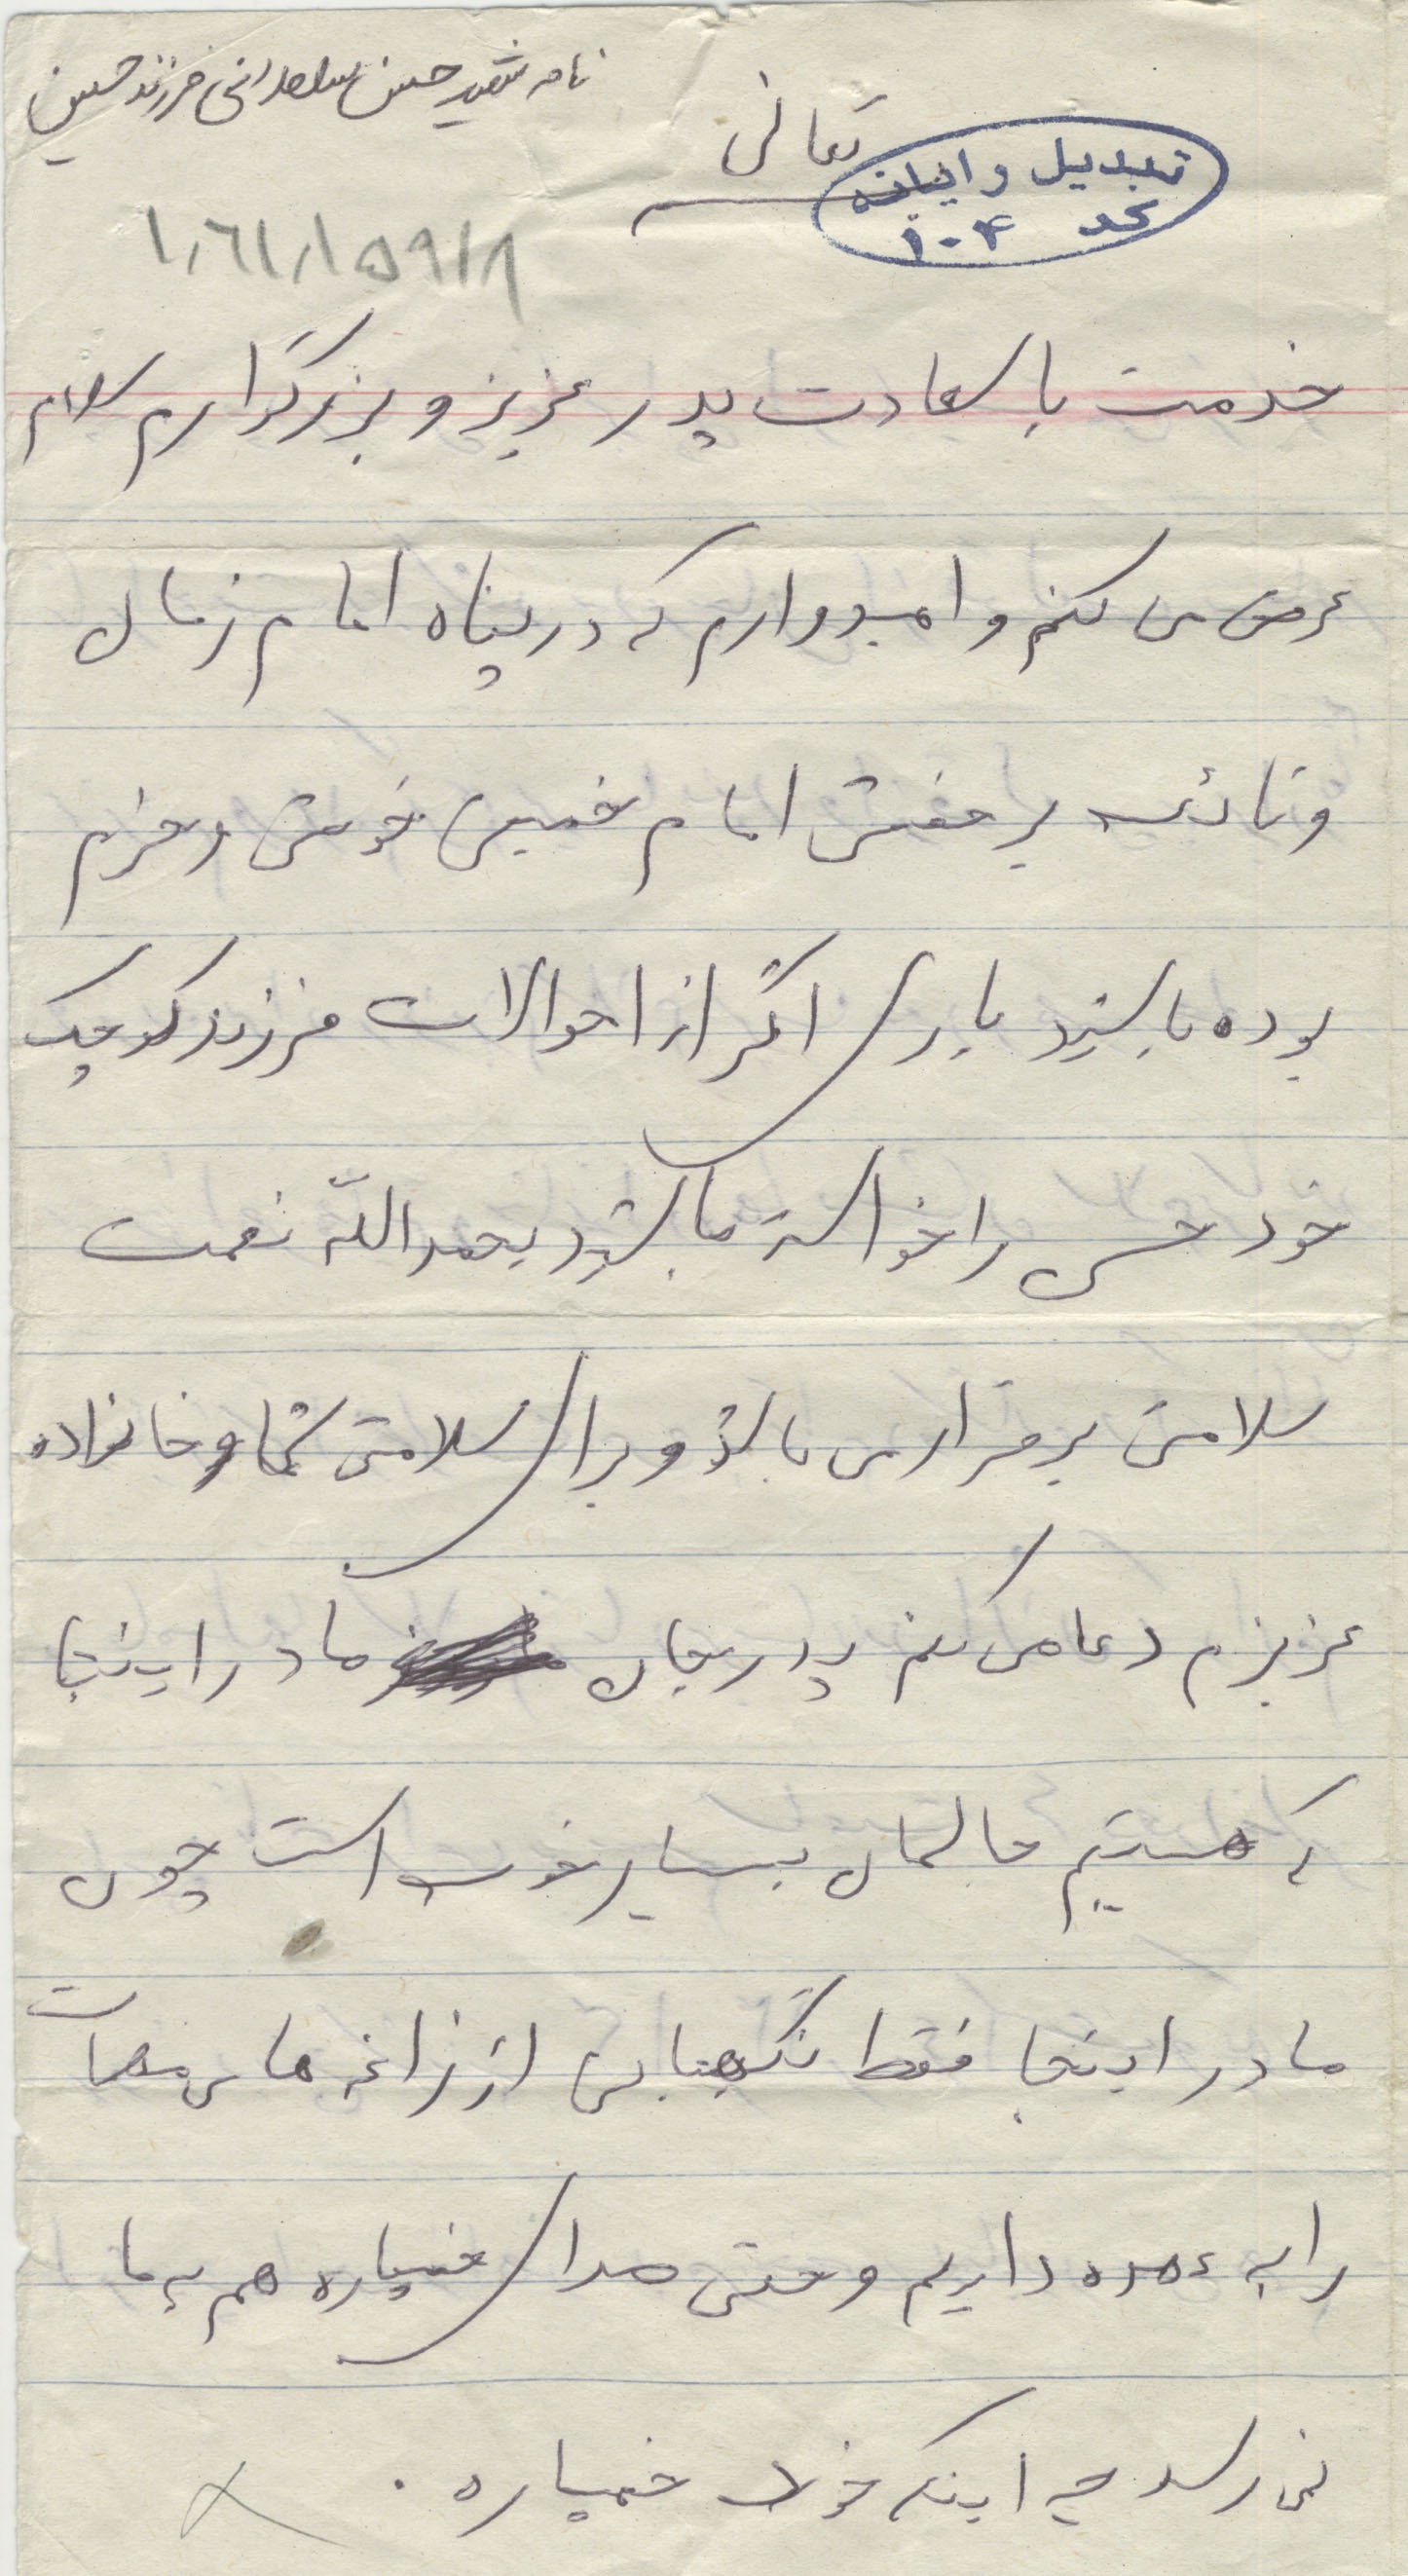 نامه شهید حسن سلطانی فرزند حسین
تعالی
تبدیل و ایانه
کد ۱۰۴
۱,۶۱,۱۵۹۱۸
خدمت با سعادت پدر عزیز و بزرگوارم سلام
عرض می کنم و امیدوارم که در پناه امام زمان
و نائب بر حقش امام خمینی خوش و خرم
بوده باشید باری اگر از احوالات فرزند کوچک
خود حسن را خواسته باشید بحمد اللّه نعمت
سلامتی برقرار می باشد و برای سلامتی شما و خانواده
عزیزم دعا می کنم پدر جان ما در اینجا
که هستیم حالمان بسیار خوب است چون
ما در اینجا فقط نگهبانی از زاغه های مهمات
را به عهده داریم و حتی صدای خمپاره هم به ما
نمی رسد چه اینکه خود خمپاره .